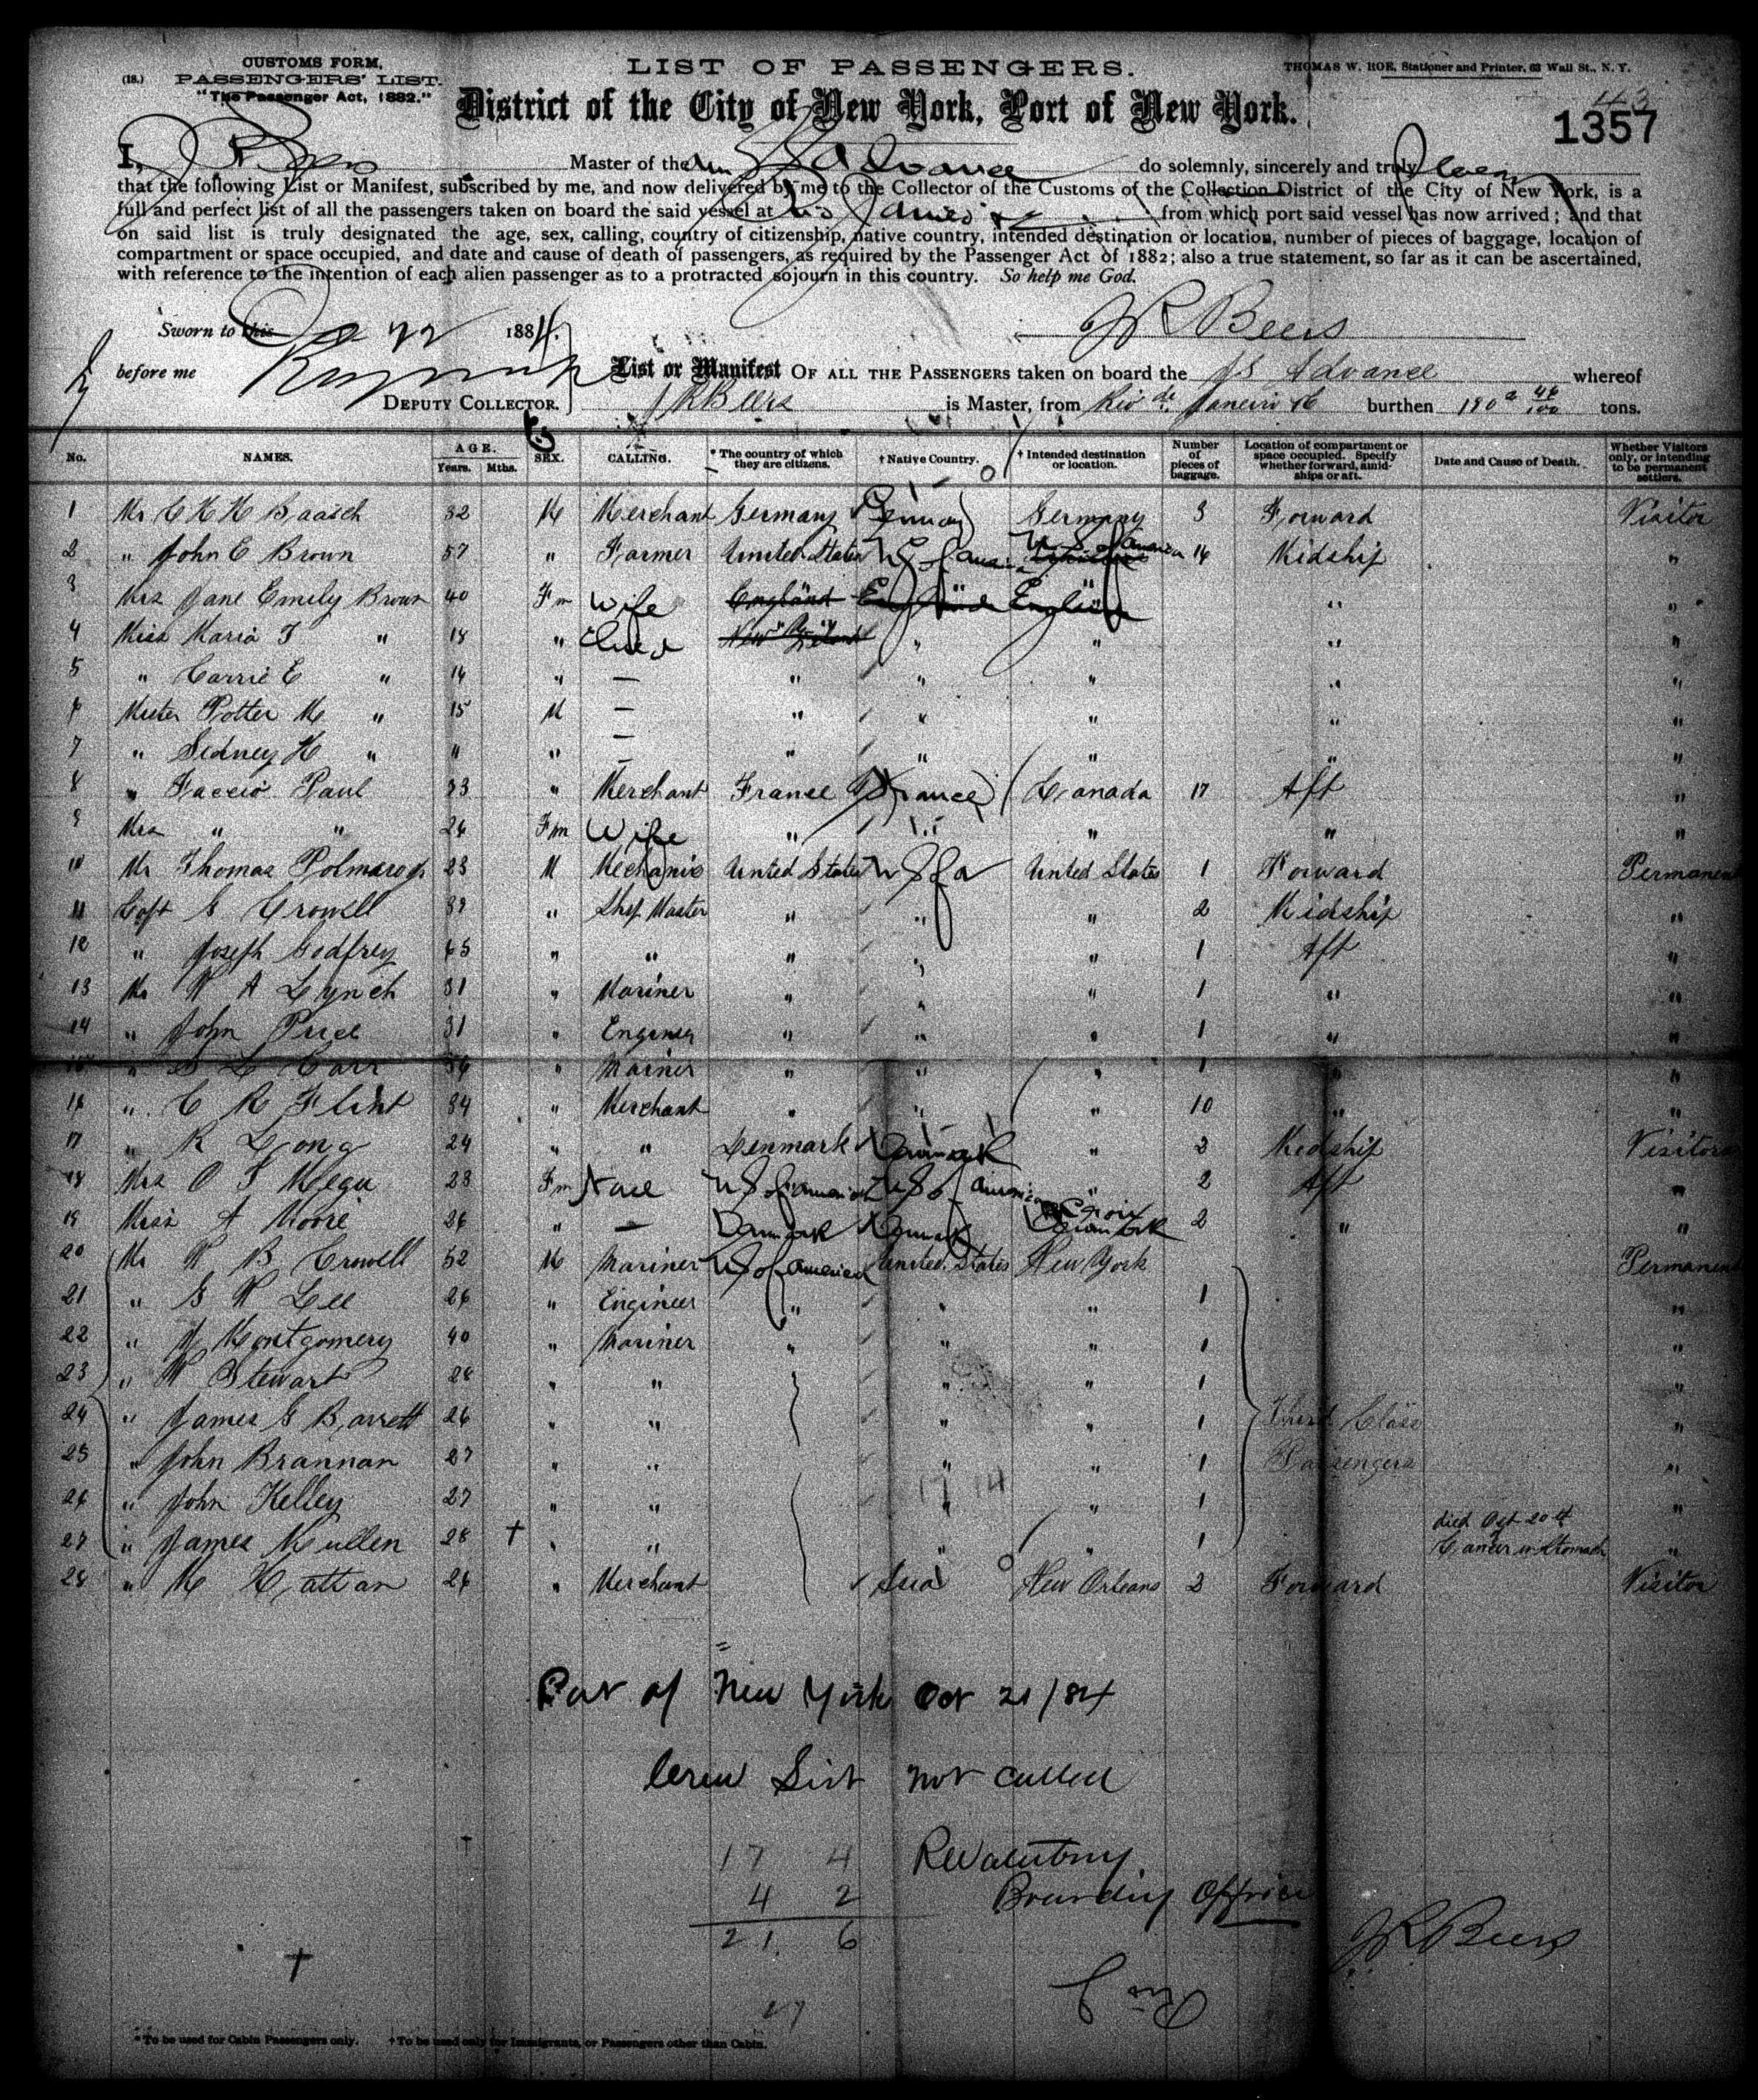 CUSTOMS FORM,
(18.) PASSENGERS' LIST.
"The Passenger Act, 1882."
LIST OF PASSENGERS.
THOMAS W. ROE, Stationer and Printer, 63 Wall St., N. Y.
District of the City of New York, Port of New York.
43
1357
I, J R Beers Master of the SS Advance do solemnly, sincerely and truly swear
that the following List or Manifest, subscribed by me, and now delivered by me to the Collector of the Customs of the Collection District of the City of New York, is a
full and perfect list of all the passengers taken on board the said vessel at Rio Janeiro from which port said vessel has now arrived; and that
on said list is truly designated the age, sex, calling, country of citizenship, native country, intended destination or location, number of pieces of baggage, location of
compartment or space occupied, and date and cause of death of passengers, as required by the Passenger Act of 1882; also a true statement, so far as it can be ascertained,
with reference to the intention of each alien passenger as to a protracted sojourn in this country. So help me God.
Sworn to this Oct 22 1884.
J R Beers
before me
List or Manifest OF ALL THE PASSENGERS taken on board the SS Advance whereof
DEPUTY COLLECTOR. J R Beers is Master, from Rio de Janeiro burthen 1902 46/100 tons.
No. NAMES. AGE. Years. Mths. SEX. CALLING. * The country of which they are citizens. † Native Country. † Intended destination or location. Number of pieces of baggage. Location of compartment or space occupied. Specify whether forward, amidships or aft. Date and Cause of Death. Whether Visitors only, or intending to be permanent settlers.
1 Mr C H H Baasch 32 M Merchant Germany Germany Germany 3 Forward Visitor
2 " John E Brown 57 " Farmer United States U S of America U S of America 14 Midship "
3 Mrs Jane Emily Brown 40 Fm Wife England England " "
4 Miss Maria F " 18 " Child New Zealand " " " "
5 " Carrie E " 14 " — " " " " "
6 Mister Potter M " 15 M — " " " " "
7 " Sidney H " 11 " — " " " " "
8 " Faccio Paul 33 " Merchant France France Canada 17 Aft "
9 Mrs " " 26 Fm Wife " " " " "
10 Mr Thomas 23 M Mechanic United States U S of A United States 1 Forward Permanent
11 Capt G Crowell 39 " Ship Master " " " 2 Midship "
12 " Joseph Godfrey 65 " " " " " 1 Aft "
13 Mr W A Lynch 31 " Mariner " " " 1 " "
14 " John Price 31 " Engineer " " " 1 " "
15 " L Carr 36 " Mariner " " " 1 " "
16 " C R Flint 34 " Merchant " " " 10 " "
17 " R Long 24 " " Denmark Denmark " 2 Midship Visitors
18 Mrs O F 23 Fm None U S of America U S of America " 2 Aft "
19 Miss A Moore 26 " — Denmark Denmark Denmark 2 " "
20 Mr W B Crowell 52 M Mariner U S of America United States New York Permanent
21 " G W Lee 26 " Engineer " " " 1 "
22 " J Montgomery 40 " Mariner " " " 1 "
23 " W Stewart 28 " " " " 1 "
24 " James G Barrett 26 " " " " 1 Third Class "
25 " John Brannan 27 " " " " 1 Passengers "
26 " John Kelley 27 " " " " 1 "
27 " James Mullen 28 † " " " " 1 died Oct 20th Cancer in Stomach "
28 " M Hattan 26 " Merchant New Orleans 2 Forward Visitor
17 14
Port of New York Oct 21/84
Crew List not called
17 4
4 2
21 6
Boarding Officer
J R Beers
†
27
* To be used for Cabin Passengers only. † To be used only for Immigrants, or Passengers other than Cabin.